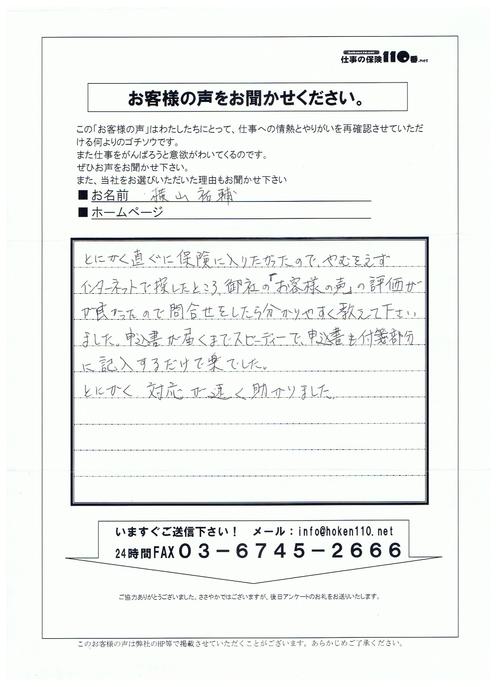 仕事の保険110番.net
お客様の声をお聞かせください。
この「お客様の声」はわたしたちにとって、仕事への情熱とやりがいを再確認させていただ
ける何よりのゴチソウです。
また仕事をがんばろうと意欲がわいてくるのです。
ぜひお声をお聞かせ下さい。
また、当社をお選びいただいた理由もお聞かせ下さい
■お名前 横山祐輔
■ホームページ
とにかく直ぐに保険に入りたかったので、やむをえず
インターネットで探したところ、御社の「お客様の声」の評価が
が良かったので問合せをしたら分かりやすく教えて下さい
ました。申込書が届くまでスピーディーで、申込書も付箋部分
に記入するだけで楽でした。
とにかく 対応が速く助かりました
いますぐご送信下さい! メール：info@hoken110.net
24時間FAX 03-6745-2666
ご協力ありがとうございました。ささやかではございますが、後日アンケートのお礼をお送りいたします。
このお客様の声は弊社のHP等で掲載させていただくことがございます。あらかじめご了承ください。